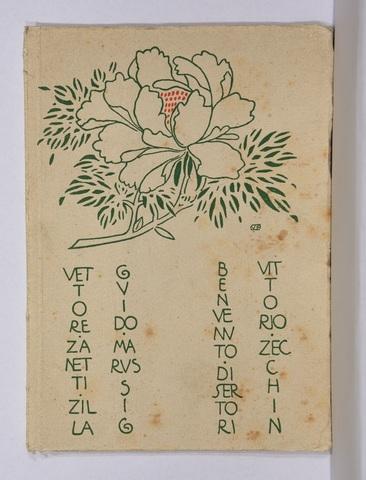 VETTORE·ZANETTI·ZILLA
GVIDO·MARVSSIG
BENVENVTO·DISERTORI
VITTORIO·ZECCHIN